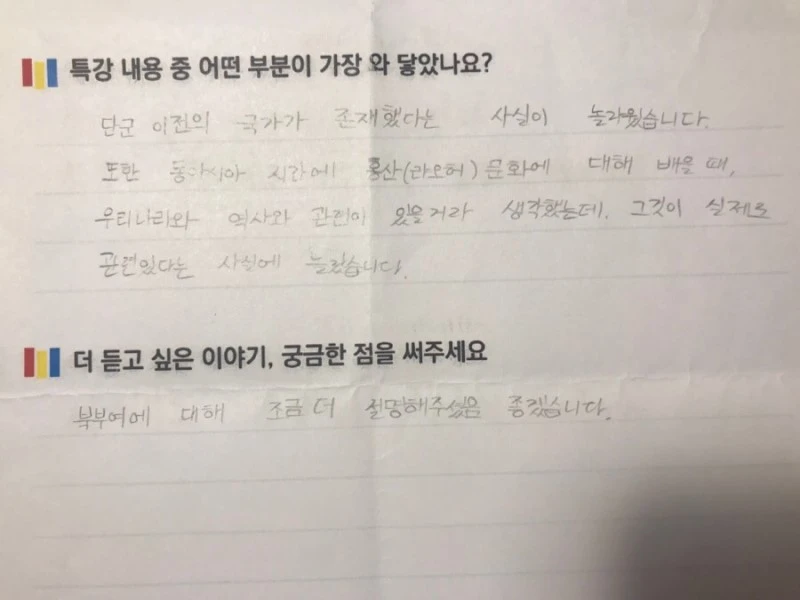 특강 내용 중 어떤 부분이 가장 와 닿았나요?
단군 이전의 국가가 존재했다는 사실이 놀라웠습니다.
또한 동아시아 시간에 홍산(라오허) 문화에 대해 배울 때,
우리나라와 역사와 관련이 있을거라 생각했는데, 그것이 실제로
관련있다는 사실에 놀랐습니다.
더 듣고 싶은 이야기, 궁금한 점을 써주세요
북부여에 대해 조금 더 설명해주셨음 좋겠습니다.